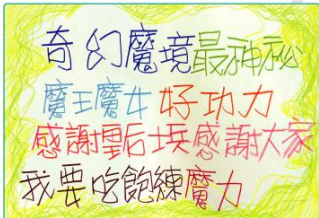 奇幻魔境最神祕
魔王魔女好功力
感謝感謝大家
我要吃飽練魔力